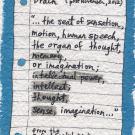 Brain (phenomenon, 2012)
"... the seat of sensation,
motion, human speech,
the organ of thought,
memory,
or imagination;
intellectual power,
intellect,
thought,
sense, imagination..."
from the